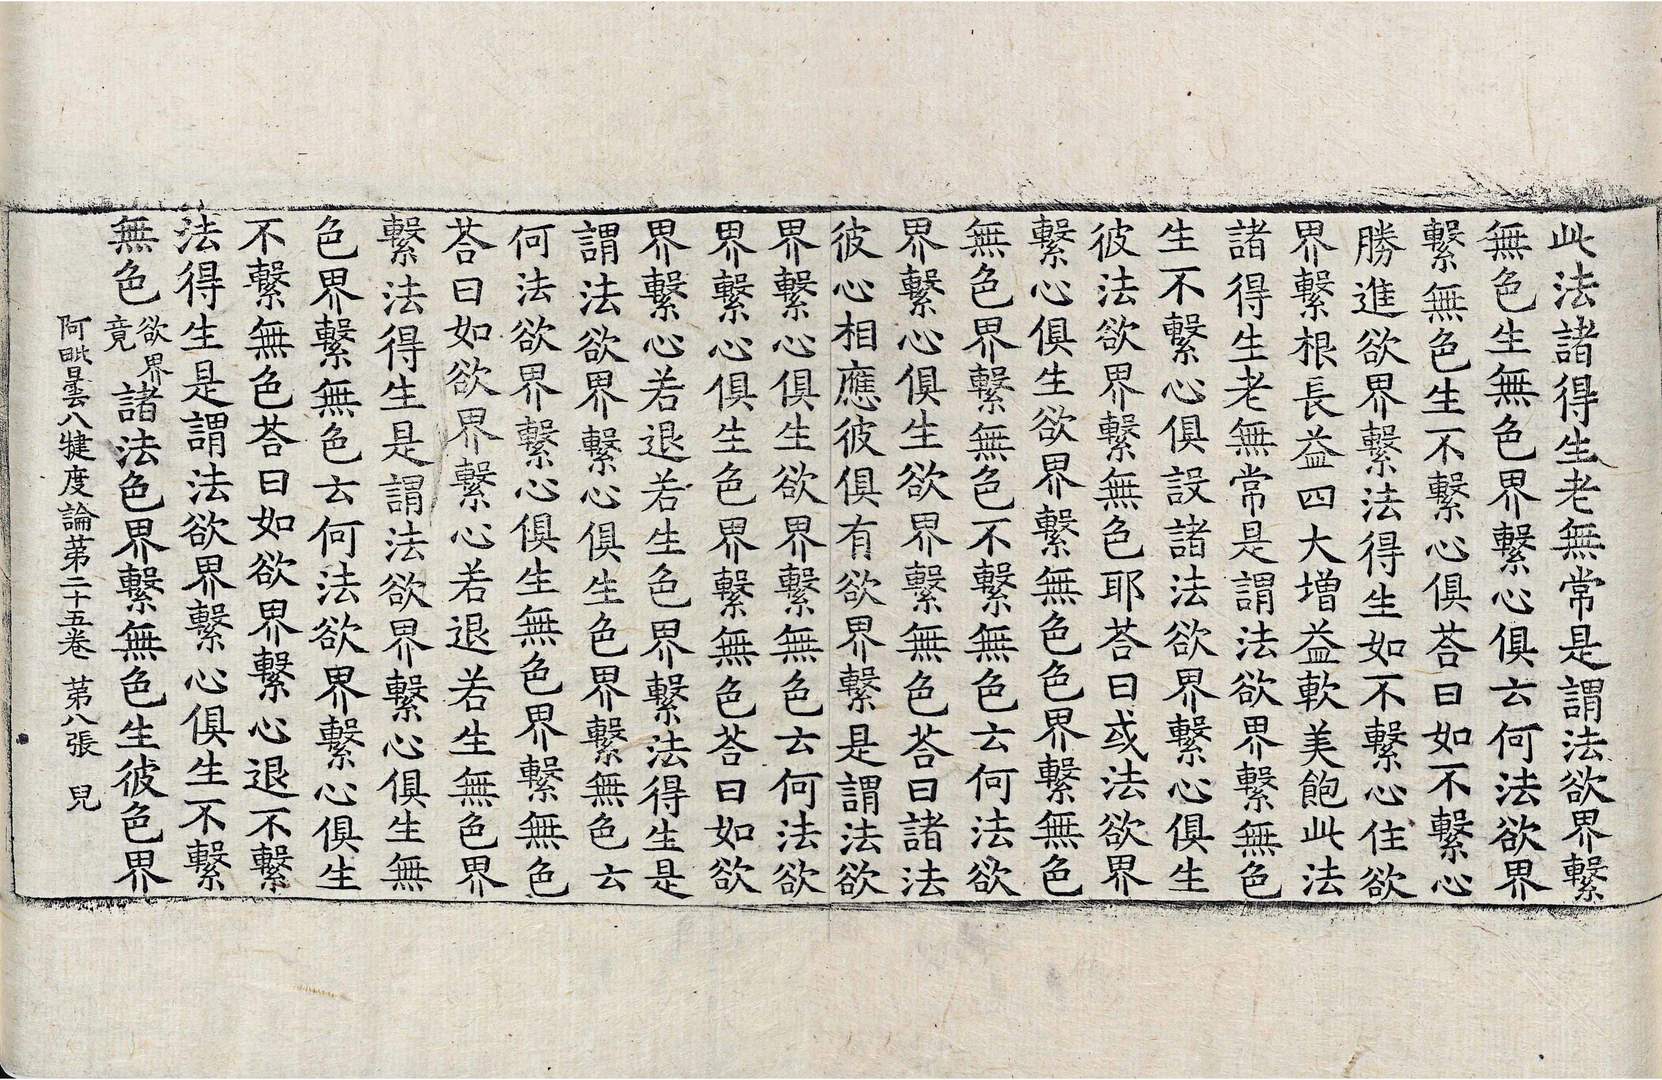 此法諸得生老無常是謂法欲界繫
無色生無色界繫心俱云何法欲界
繫無色生不繫心俱荅曰如不繫心
勝進欲界繫法得生如不繫心住欲
界繫根長益四大增益軟美飽此法
諸得生老無常是謂法欲界繫無色
生不繫心俱設諸法欲界繫心俱生
彼法欲界繫無色耶荅曰或法欲界
繫心俱生欲界繫無色色界繫無色
無色界繫無色不繫無色云何法欲
界繫心俱生欲界繫無色荅曰諸法
彼心相應彼俱有欲界繫是謂法欲
界繫心俱生欲界繫無色云何法欲
界繫心俱生色界繫無色荅曰如欲
界繫心若退若生色界繫法得生是
謂法欲界繫心俱生色界繫無色云
何法欲界繫心俱生無色界繫無色
荅曰如欲界繫心若退若生無色界
繫法得生是謂法欲界繫心俱生無
色界繫無色云何法欲界繫心俱生
不繫無色荅曰如欲界繫心退不繫
法得生是謂法欲界繫心俱生不繫
無色欲界竟諸法色界繫無色生彼色界
阿毗曇八犍度論第二十五卷 第八張 兒